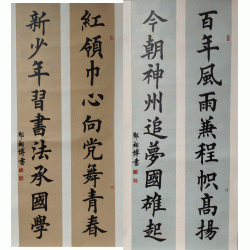 百年風雨兼程幟高揚
今朝神州追夢國雄起
紅領巾心向党舞青春
新少年習書法承國學